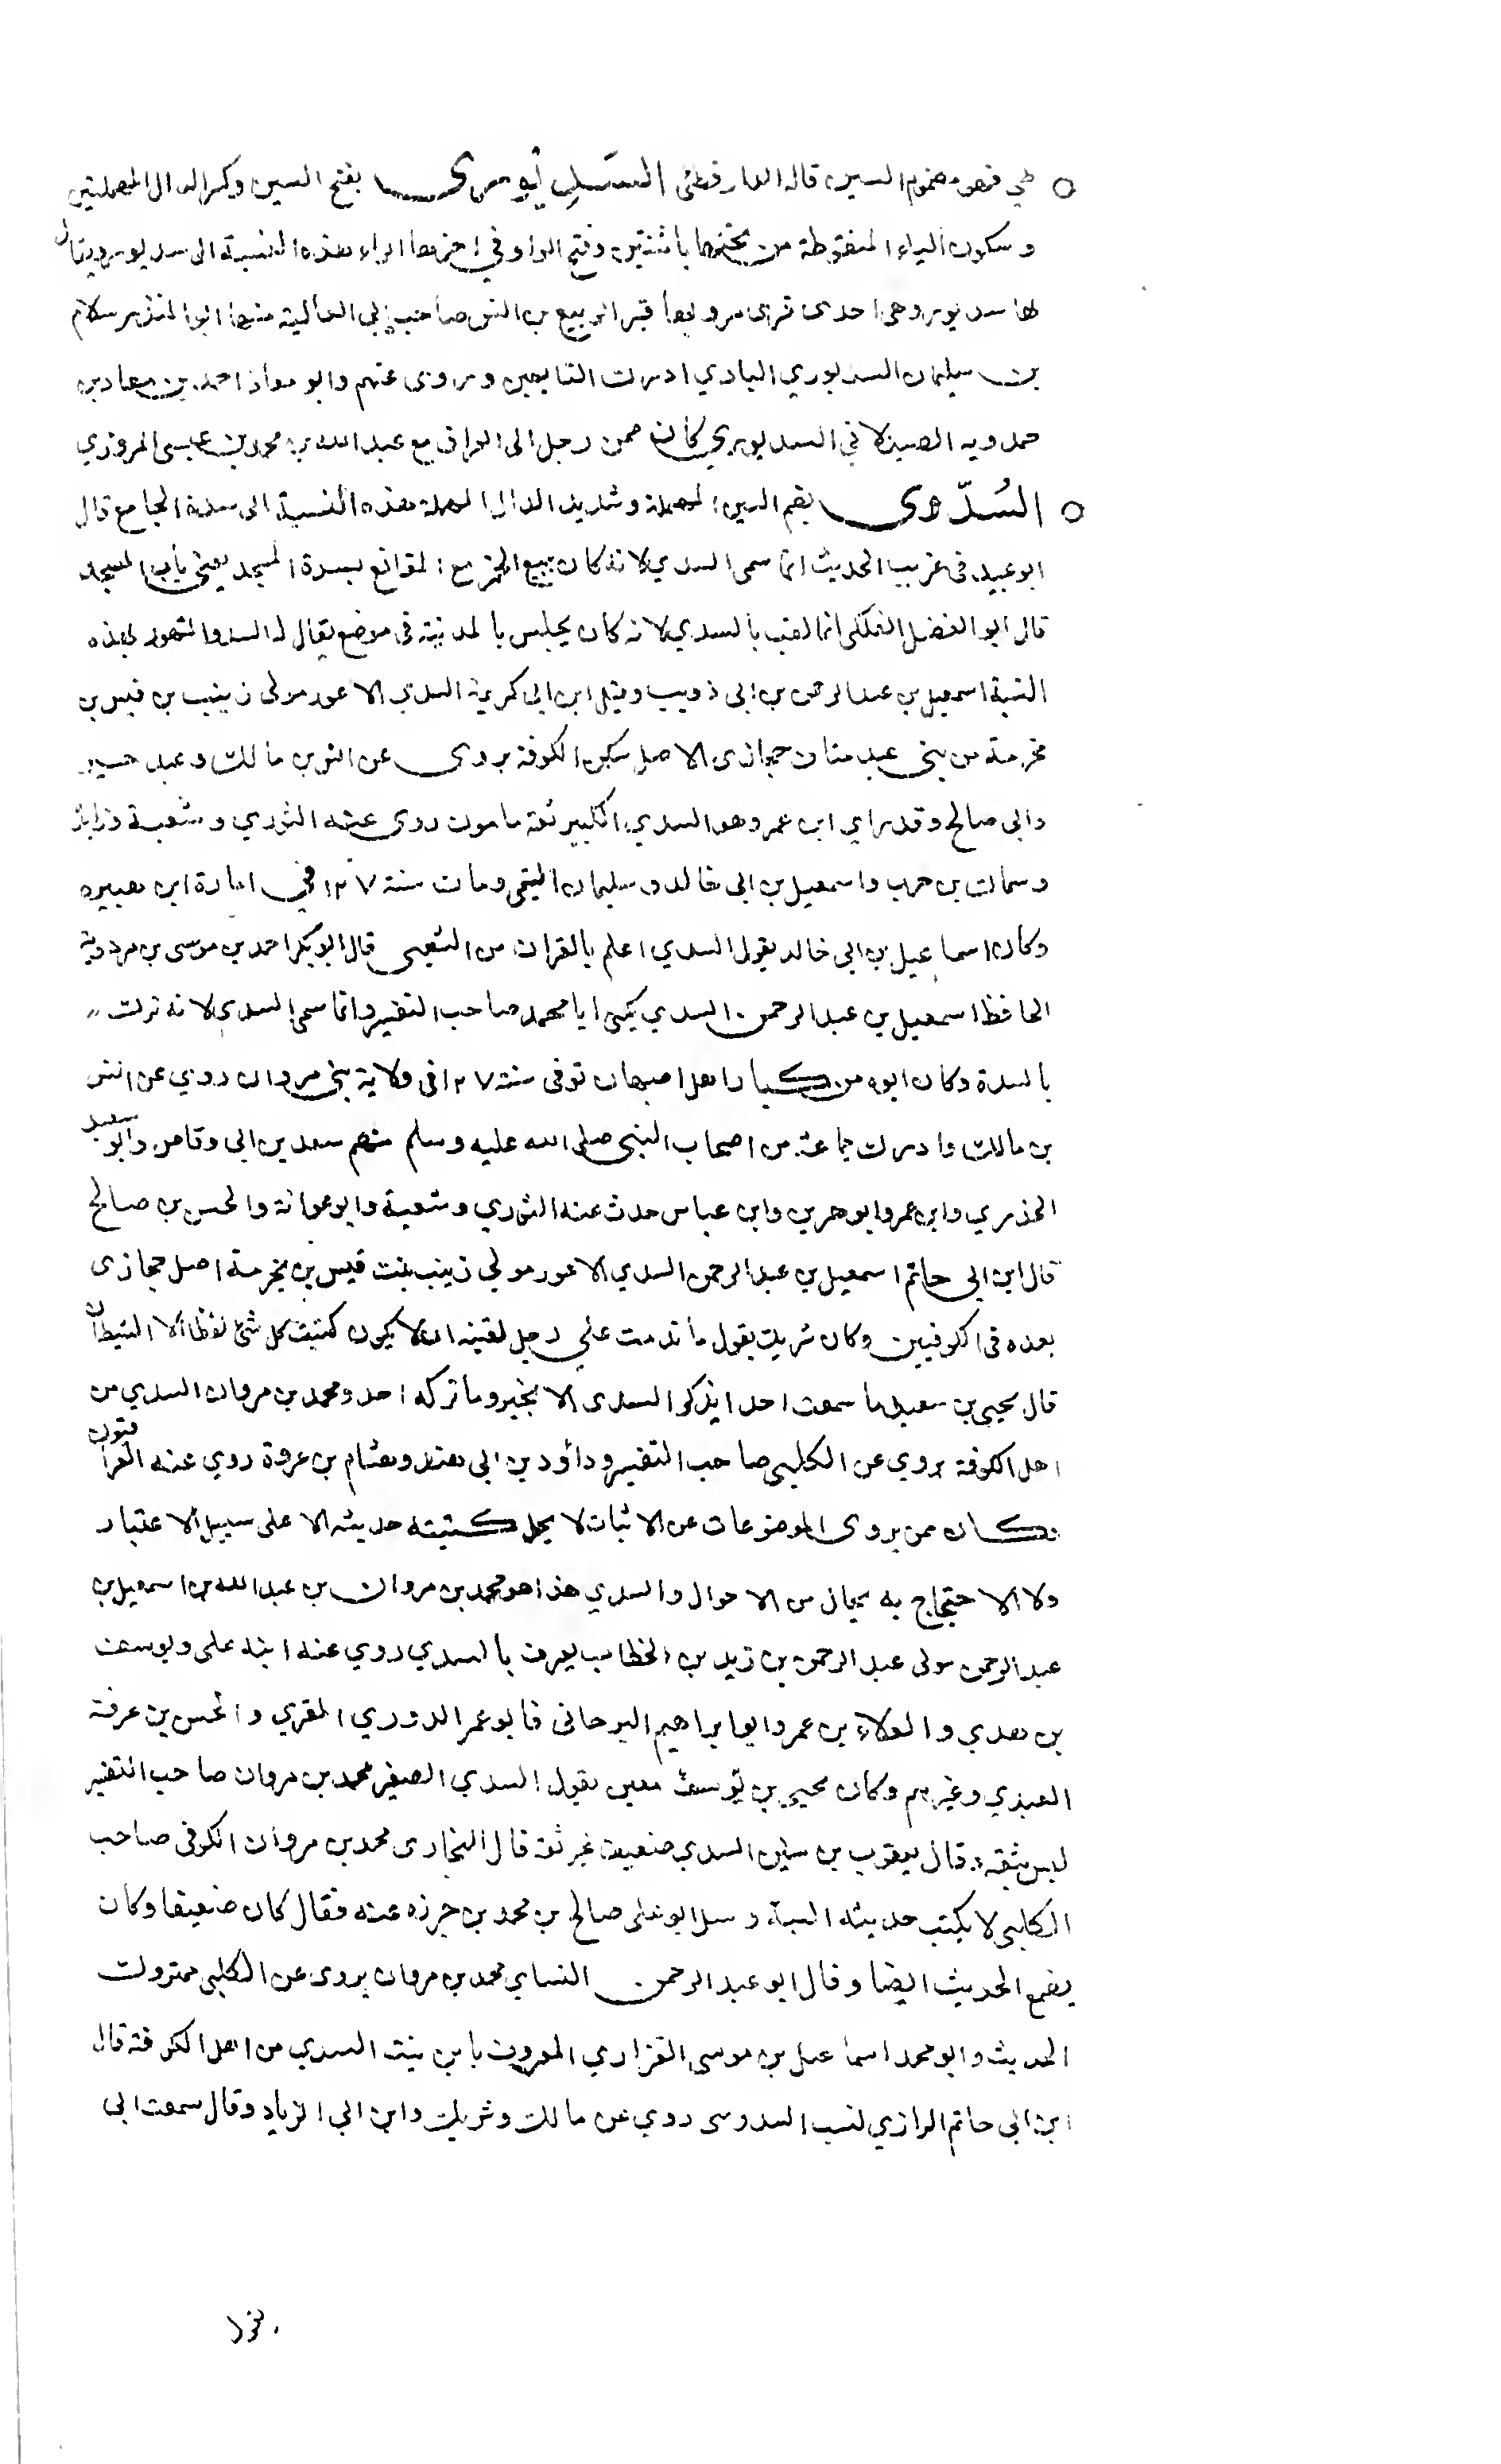 طي فهو مضموم السين قاله الدارقطنى السَدِيورى بفتح السين وكسر الدال المهملتين
وسكون الياء المنقوطة من تحتها باثنتين وفتح الواو وفي اخرها الراء هذه النسبة الى سديور ويقال
لها سديور وهى احدى قرى مرو وبها قبر الربيع بن انس صاحب ابي العالية منها ابو المنذر سلام
بن سليمان السديوري البادي ادرك التابعين وروى عنهم وابو معاذ احمد بن معاد بن
حمدويه الصيدلاني السديوري كان ممن رحل الى العراق مع عبد الله بن محمد بن عيسى المروزي
السُدّى بضم السين المهملة وشديد الدال المهملة هذه النسبة الى سدة الجامع قال
ابو عبيد فى غريب الحديث انما سمى السدي لانه كان يبيع الخمر مع المقانع بسدة المسجد يعنى باب المسجد
قال ابو الفضل الفلكى انما لقب بالسدي لانه كان يجلس بالمدينة فى موضع يقال له السد والمشهور بهذه
النسبة اسمعيل بن عبد الرحمن بن ابى ذويب وقيل ابن ابى كريمة السدي الاعور مولى زينب بن قيس بن
مخرمة من بنى عبد مناف حجازى الاصل سكن الكوفة يروى عن انس بن مالك وعبد خير
وابى صالح وقد راي ابن عمر وهو السدي الكبير ثقة مامون روى عنه الثوري وشعبة وزائد
وسماك بن حرب واسمعيل بن ابى خالد وسليمان التيمى ومات سنة ١٢٧ في امارة ابن هبيره
وكان اسماعيل بن ابى خالد يقول السدي اعلم بالقران من الشعبى قال ابو بكر احمد بن موسى بن مردوية
الحافظ اسمعيل بن عبد الرحمن السدي يكنى ابا محمد صاحب التفسير وانما سمى السدي لانه نزلت
بالسدة وكان ابوه من كبار اهل اصبهان توفى سنة ١٢٧ فى ولاية بنى مروان روي عن انس
بن مالك وادرك جماعة من اصحاب النبى صلى الله عليه وسلم منهم سعد بن ابى وقاص وابو سعيد
الخذري وابن عمر وابو هرين وابن عباس حدث عنه الثوري وشعبة وابو عوانة والحسن بن صالح
قال ابن ابى حاتم اسمعيل بن عبد الرحمن السدي الاعور مولي زينب بنت قيس بن مخرمة اصل حجازى
بعده فى الكوفيين وكان شريك يقول ما ندمت علي رجل لقيته ان لا يكون كتبت كل شئ لفظ الا الشيطان
قال يحيى بن سعيد ما سمعت احدا يذكر السدى الا بخير وما تركه احد ومحمد بن مروان السدي من
اهل الكوفة يروي عن الكلبى صاحب التفسير وداؤد بن ابى هند وهشام بن عروة روي عنه العرا قيون
وكان ممن يروى الموضوعات عن الاثبات لا يحل كتبته حديثه الا على سبيل الاعتبار
ولا الاحتجاج به بحال من الاحوال والسدي هذا هو محمد بن مروان بن عبد الله بن اسمعيل بن
عبد الرحمن مولى عبد الرحمن بن زيد بن الخطاب يعرف بالسدي روي عنه ابنه على ويوسف
بن هدي والعلاء بن عمرو ابو ابراهيم البرحانى فابو عمر الدوري المقري والحسن بن عرفة
العبدي وغيرهم وكان يحيى بن يوسف معين يقول السدي الصغير محمد بن مروان صاحب التفسير
ليس بثقة قال يعقوب بن سفين السدي ضعيف غير ثقة قال البخارى محمد بن مروان الكوفى صاحب
الكلبى لا يكتب حديثه البتة وسل ابو على صالح بن محمد بن جرزه عنه فقال كان ضعيفا وكان
يضع الحديث ايضا وقال ابو عبد الرحمن النساى محمد بن مروان يروى عن الكلبى متروك
الحديث وابو محمد اسماعيل بن موسى الفزاري المعروف بابن بنت السدي من اهل الكوفة قال
ابن ابى حاتم الرازي نسب السدوسى روي عن مالك وشريك وابن ابى الزياد وقال سمعت ابى